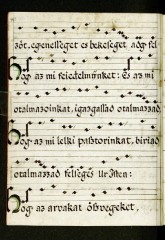 zót, egenesseget es bekeseget adg fel
Hog az mi feiedelmünket: Es az mi
otalmazoinkat, igazgassad otalmazzad
Hog az mi lelki pasztorinkat, biriad
otalmazzad felseges Ur Isten:
Hog az arvakat özvegeket,